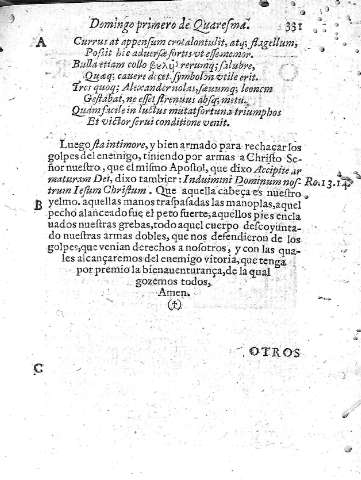 Domingo primero de Quaresma. 331
A
Currus at appensum crotalon tulit, atq; flagellum,
Possit hic adversæ fortis vt esse memor.
Bulla etiam collo rerumq; salubre,
Quaq; cauere decet symbolon vtile erit.
Tres quoq; Alexander nolas, sæuumq; leonem
Gestabat, ne esset strenuus absq; metu.
Quàm facile in luctus mutat fortuna triumphos
Et victor serui conditione venit.
Luego sta in timore, y bien armado para rechaçar los
golpes del enemigo, tiniendo por armas a Christo Se-
ñor nuestro, que el mismo Apostol, que dixo Accipite ar
maturam Dei, dixo tambien: Induimini Dominum nos- Ro. 13. 14.
trum Iesum Christum. Que aquella cabeça es nuestro
B yelmo. aquellas manos traspasadas las manoplas, aquel
pecho alanceado fue el peto fuerte, aquellos pies encla
uados nuestras grebas, todo aquel cuerpo descoyunta-
do nuestras armas dobles, que nos defendieron de los
golpes, que venian derechos a nosotros, y con las qua-
les alcançaremos del enemigo vitoria, que tenga
por premio la bienauenturança, de la qual
gozemos todos,
Amen.
(†)
OTROS
C